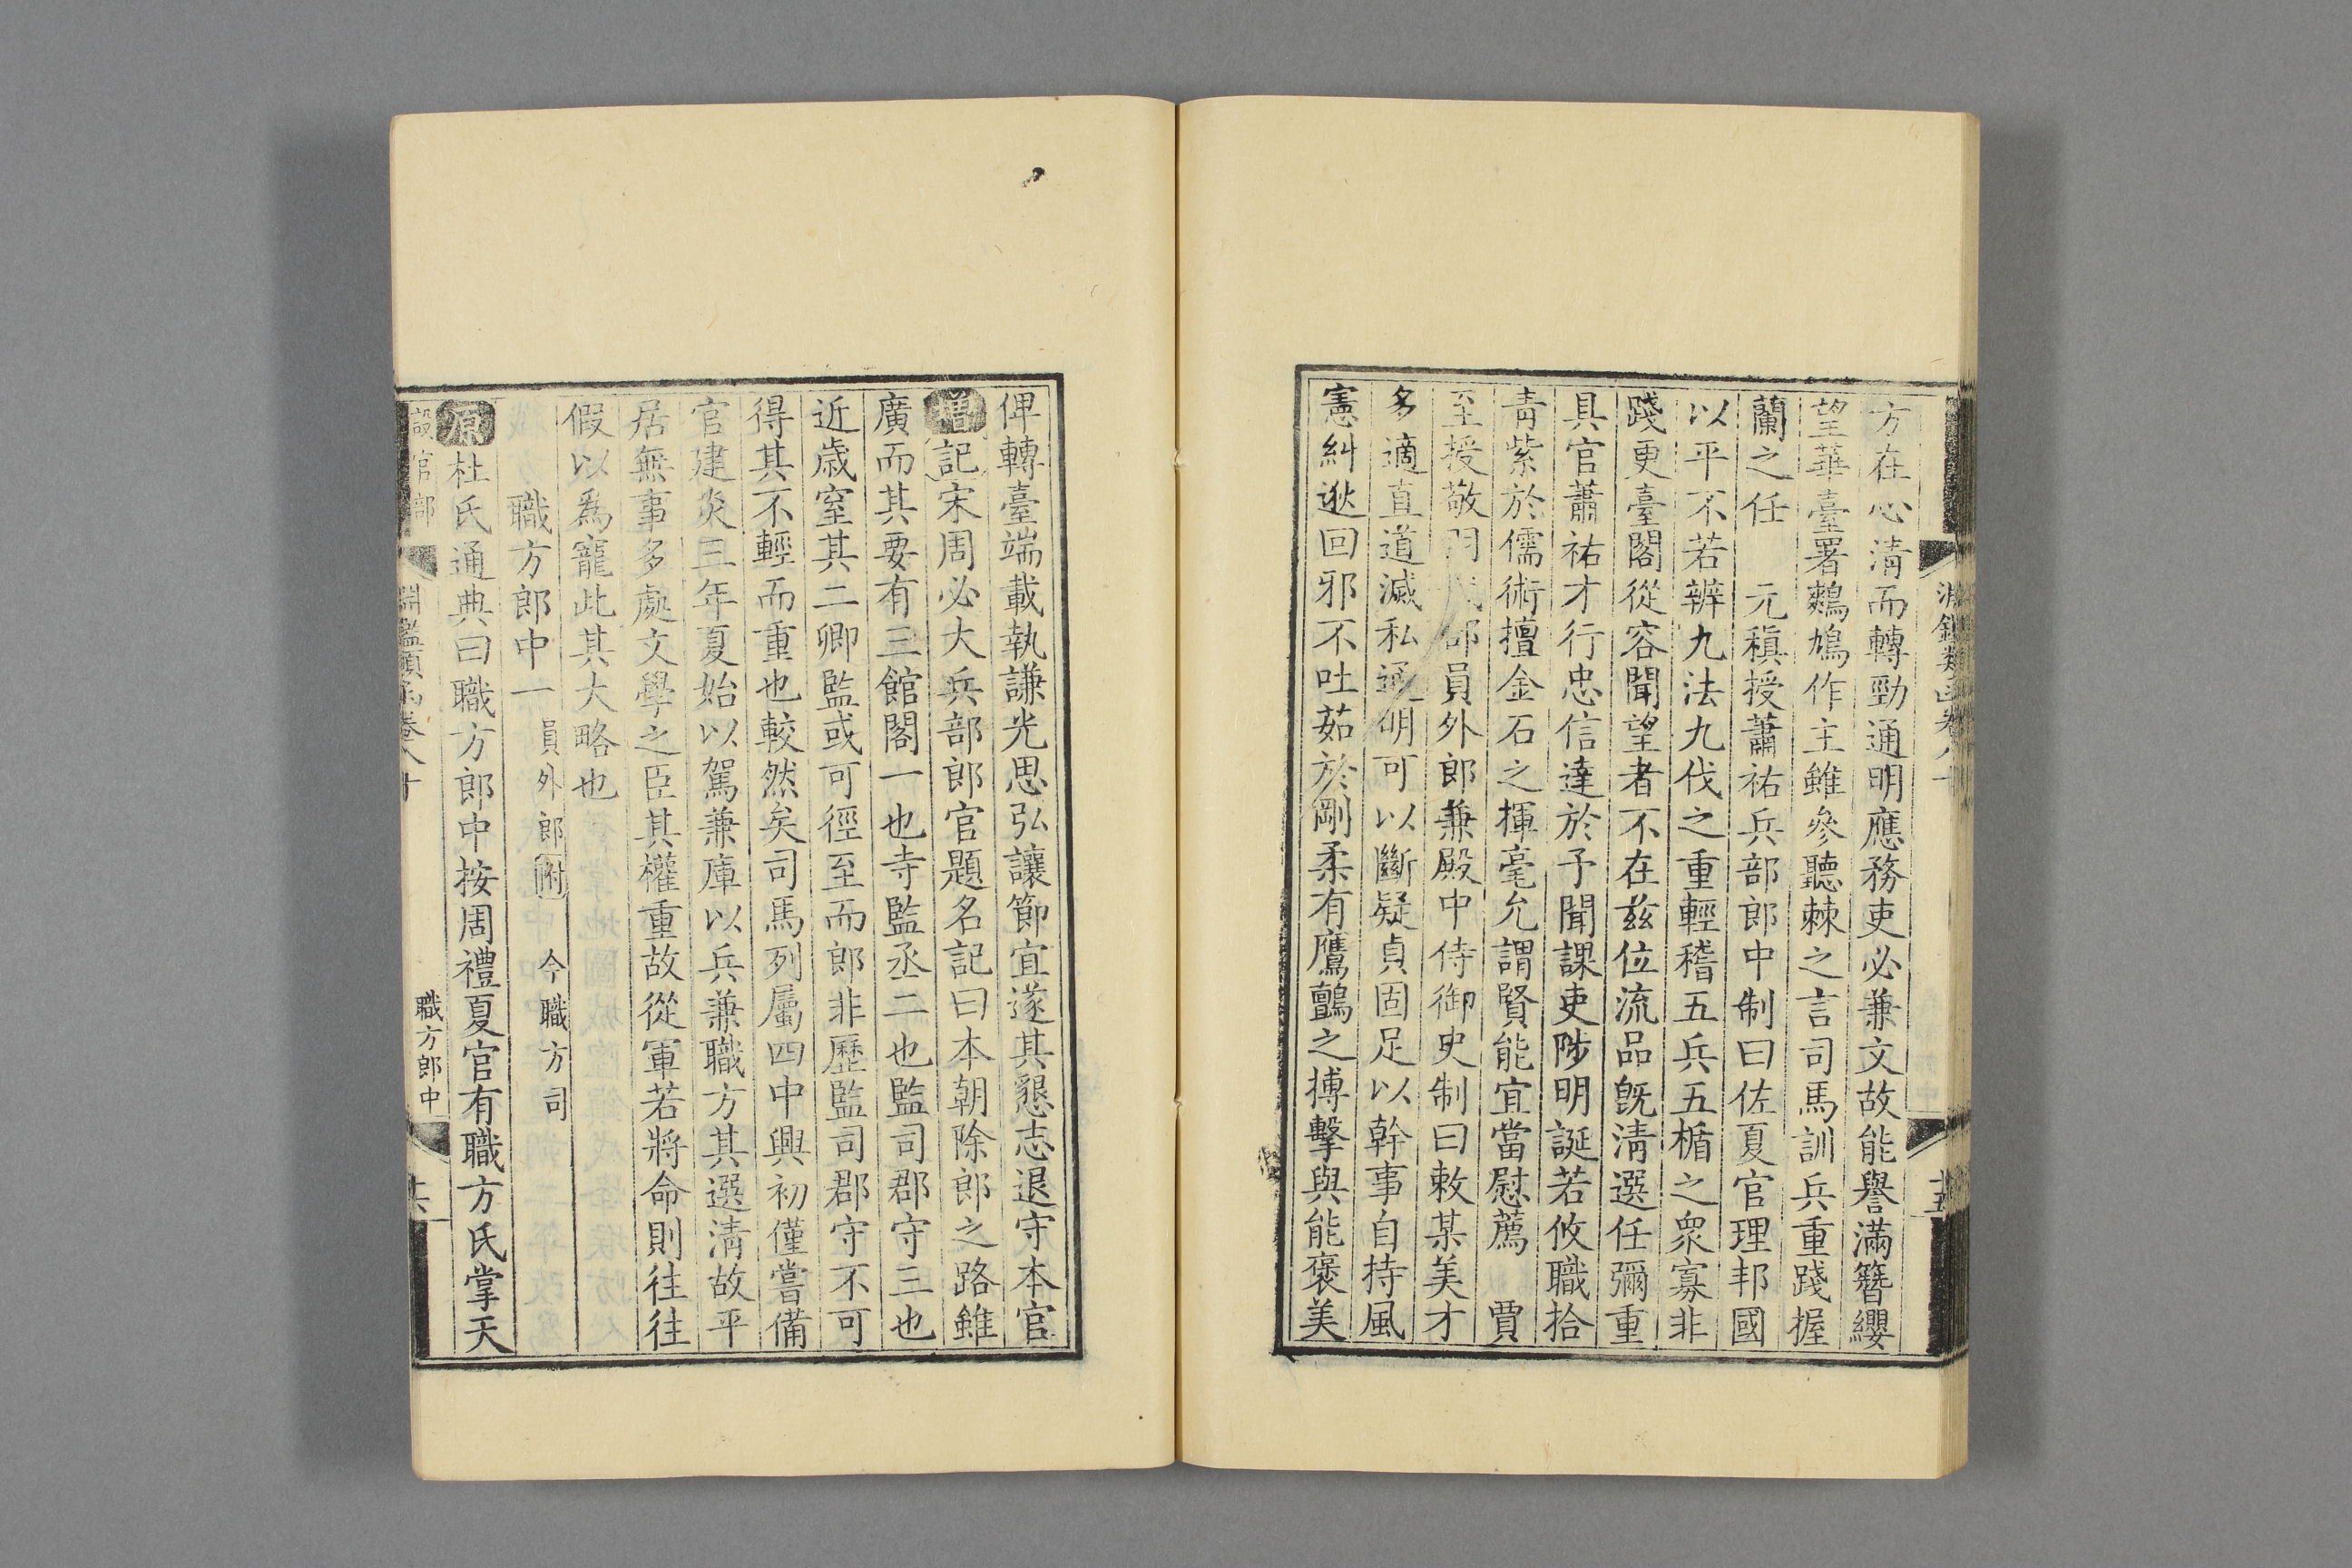 方在心清而轉勁通明應務吏必兼文故能譽滿簪纓
望華臺署鷞鳩作主雖參聽棘之言司馬訓兵重踐握
蘭之任　元稹授蕭祐兵部郎中制曰佐夏官理邦國
以平不若辨九法九伐之重輕稽五兵五楯之眾寡非
踐更臺閣從容聞望者不在兹位流品旣清選任彌重
具官蕭祐才行忠信達於予聞課吏陟明誕若攸職拾
青紫於儒術擅金石之揮毫允謂賢能宜當慰薦　賈
至授敬羽部員外郎兼殿中侍御史制曰敕某美才
多適直道滅私通明可以斷疑貞固足以幹事自持風
憲糾逖回邪不吐茹於剛柔有鷹鸇之搏擊與能褒美
俾轉臺端載執謙光思弘讓節宜遂其懇志退守本官
增記宋周必大兵部郎官題名記曰本朝除郎之路雖
廣而其要有三館閣一也寺監丞二也監司郡守三也
近歲窒其二卿監或可徑至而郎非歷監司郡守不可
得其不輕而重也較然矣司馬列屬四中興初僅嘗備
官建炎三年夏始以駕兼庫以兵兼職方其選清故平
居無事多處文學之臣其權重故從軍若將命則往往
假以爲寵此其大略也
職方郎中一員外郎附　今職方司
原杜氏通典曰職方郎中按周禮夏官有職方氏掌天
設官部　淵鑑類函卷八十　職方郎中